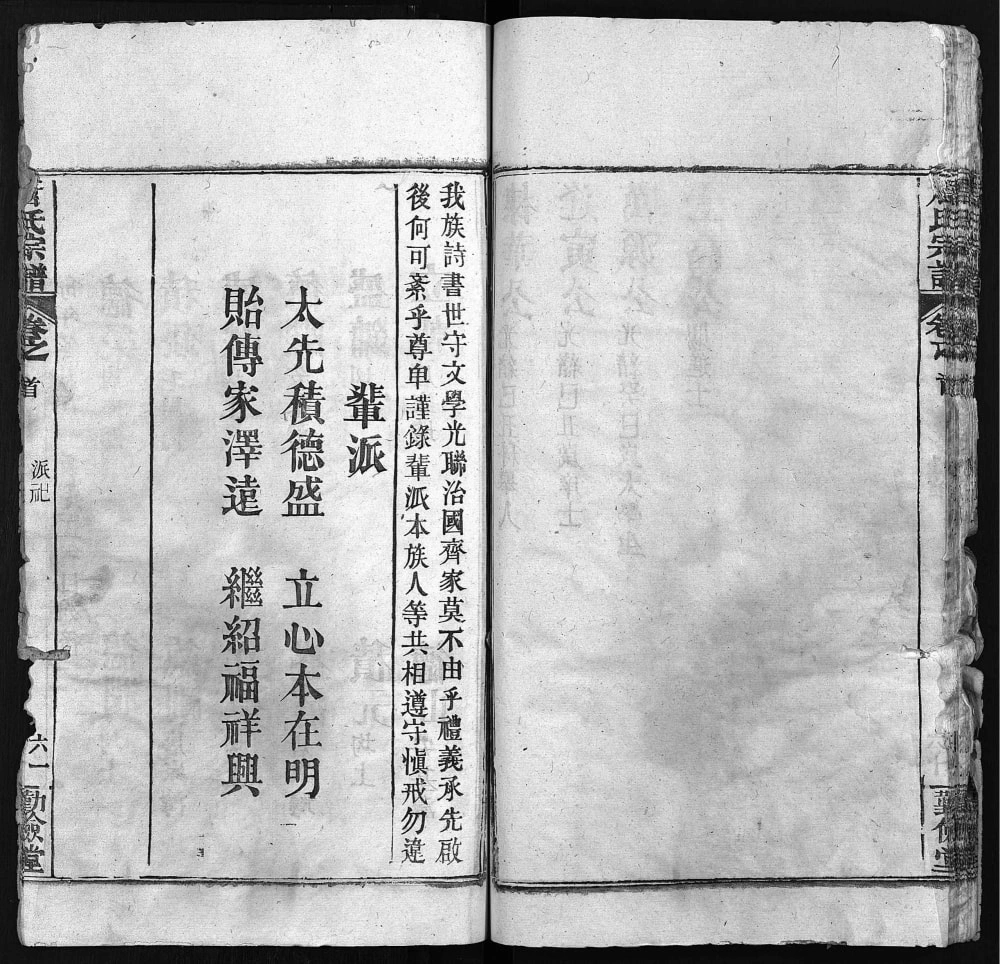 我族詩書世守文學光聯治國齊家莫不由乎禮義承先啟
後何可紊乎尊卑謹錄輩派本族人等共相遵守慎戒勿違
輩派
太先積德盛　立心本在明
貽傳家澤遠　繼紹福祥興
氏宗譜
卷之
首
派祀
六一
堂
氏宗譜
卷之首
堂